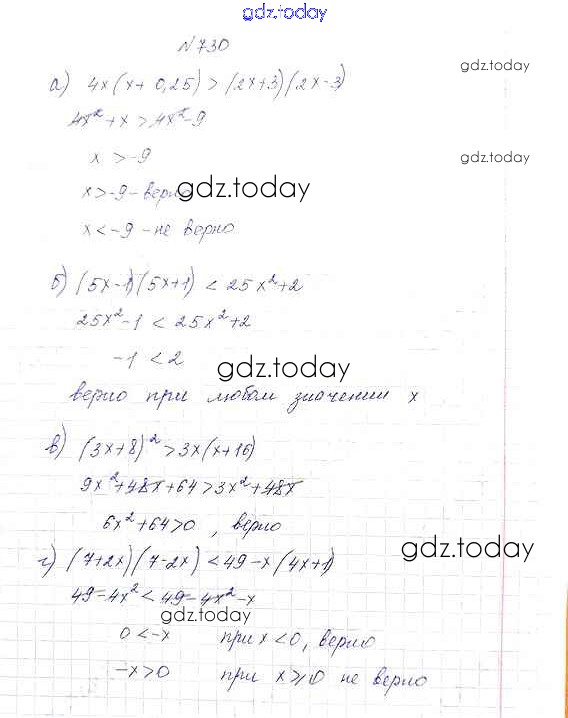 gdz.today
№730
gdz.today
а) 4x(x+0,25)>(2x+3)(2x-3)
4x²+x>4x²-9
x>-9
gdz.today
x>-9-верно
gdz.today
x<-9-не верно
б) (5x-1)(5x+1)<25x²+2
25x²-1<25x²+2
-1<2
gdz.today
верно при любом значении x
в) (3x+8)²>3x(x+16)
9x²+48x+64>3x²+48x
6x²+64>0, верно
gdz.today
г) (7+2x)(7-2x)<49-x(4x+1)
49-4x²<49-4x²-x
gdz.today
0<-x при x<0, верно
-x>0 при x⩾0 не верно